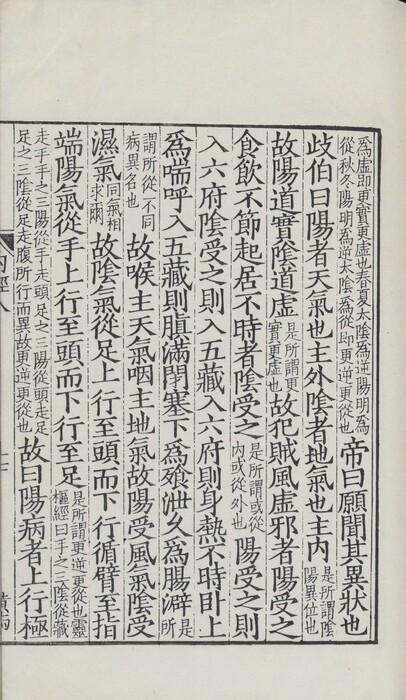 爲虛即更實更虛也春夏太陰爲逆陽明爲
從秋冬陽明爲逆太陰爲從即更逆更從也
帝曰願聞其異狀也
歧伯曰陽者天氣也主外陰者地氣也主內
是所謂陰
陽異位也
故陽道實陰道虛
是所謂更
實更虛也
故犯賊風虛邪者陽受之
食飲不節起居不時者陰受之
是所謂或從
內或從外也
陽受之則
入六府陰受之則入五藏入六府則身熱不時臥上
爲喘呼入五藏則䐜滿閉塞下爲飧泄久爲腸澼
所
是
謂所從不同
病異名也
故喉主天氣咽主地氣故陽受風氣陰受
濕氣
同氣相
求爾
故陰氣從足上行至頭而下行循臂至指
端陽氣從手上行至頭而下行至足
是所謂更逆更從也靈
樞經曰手之三陰從藏
走手手之三陽從手走頭足之三陽從頭走足
足之三陰從足走腹所行而異故更逆更從也
故曰陽病者上行極
內經八